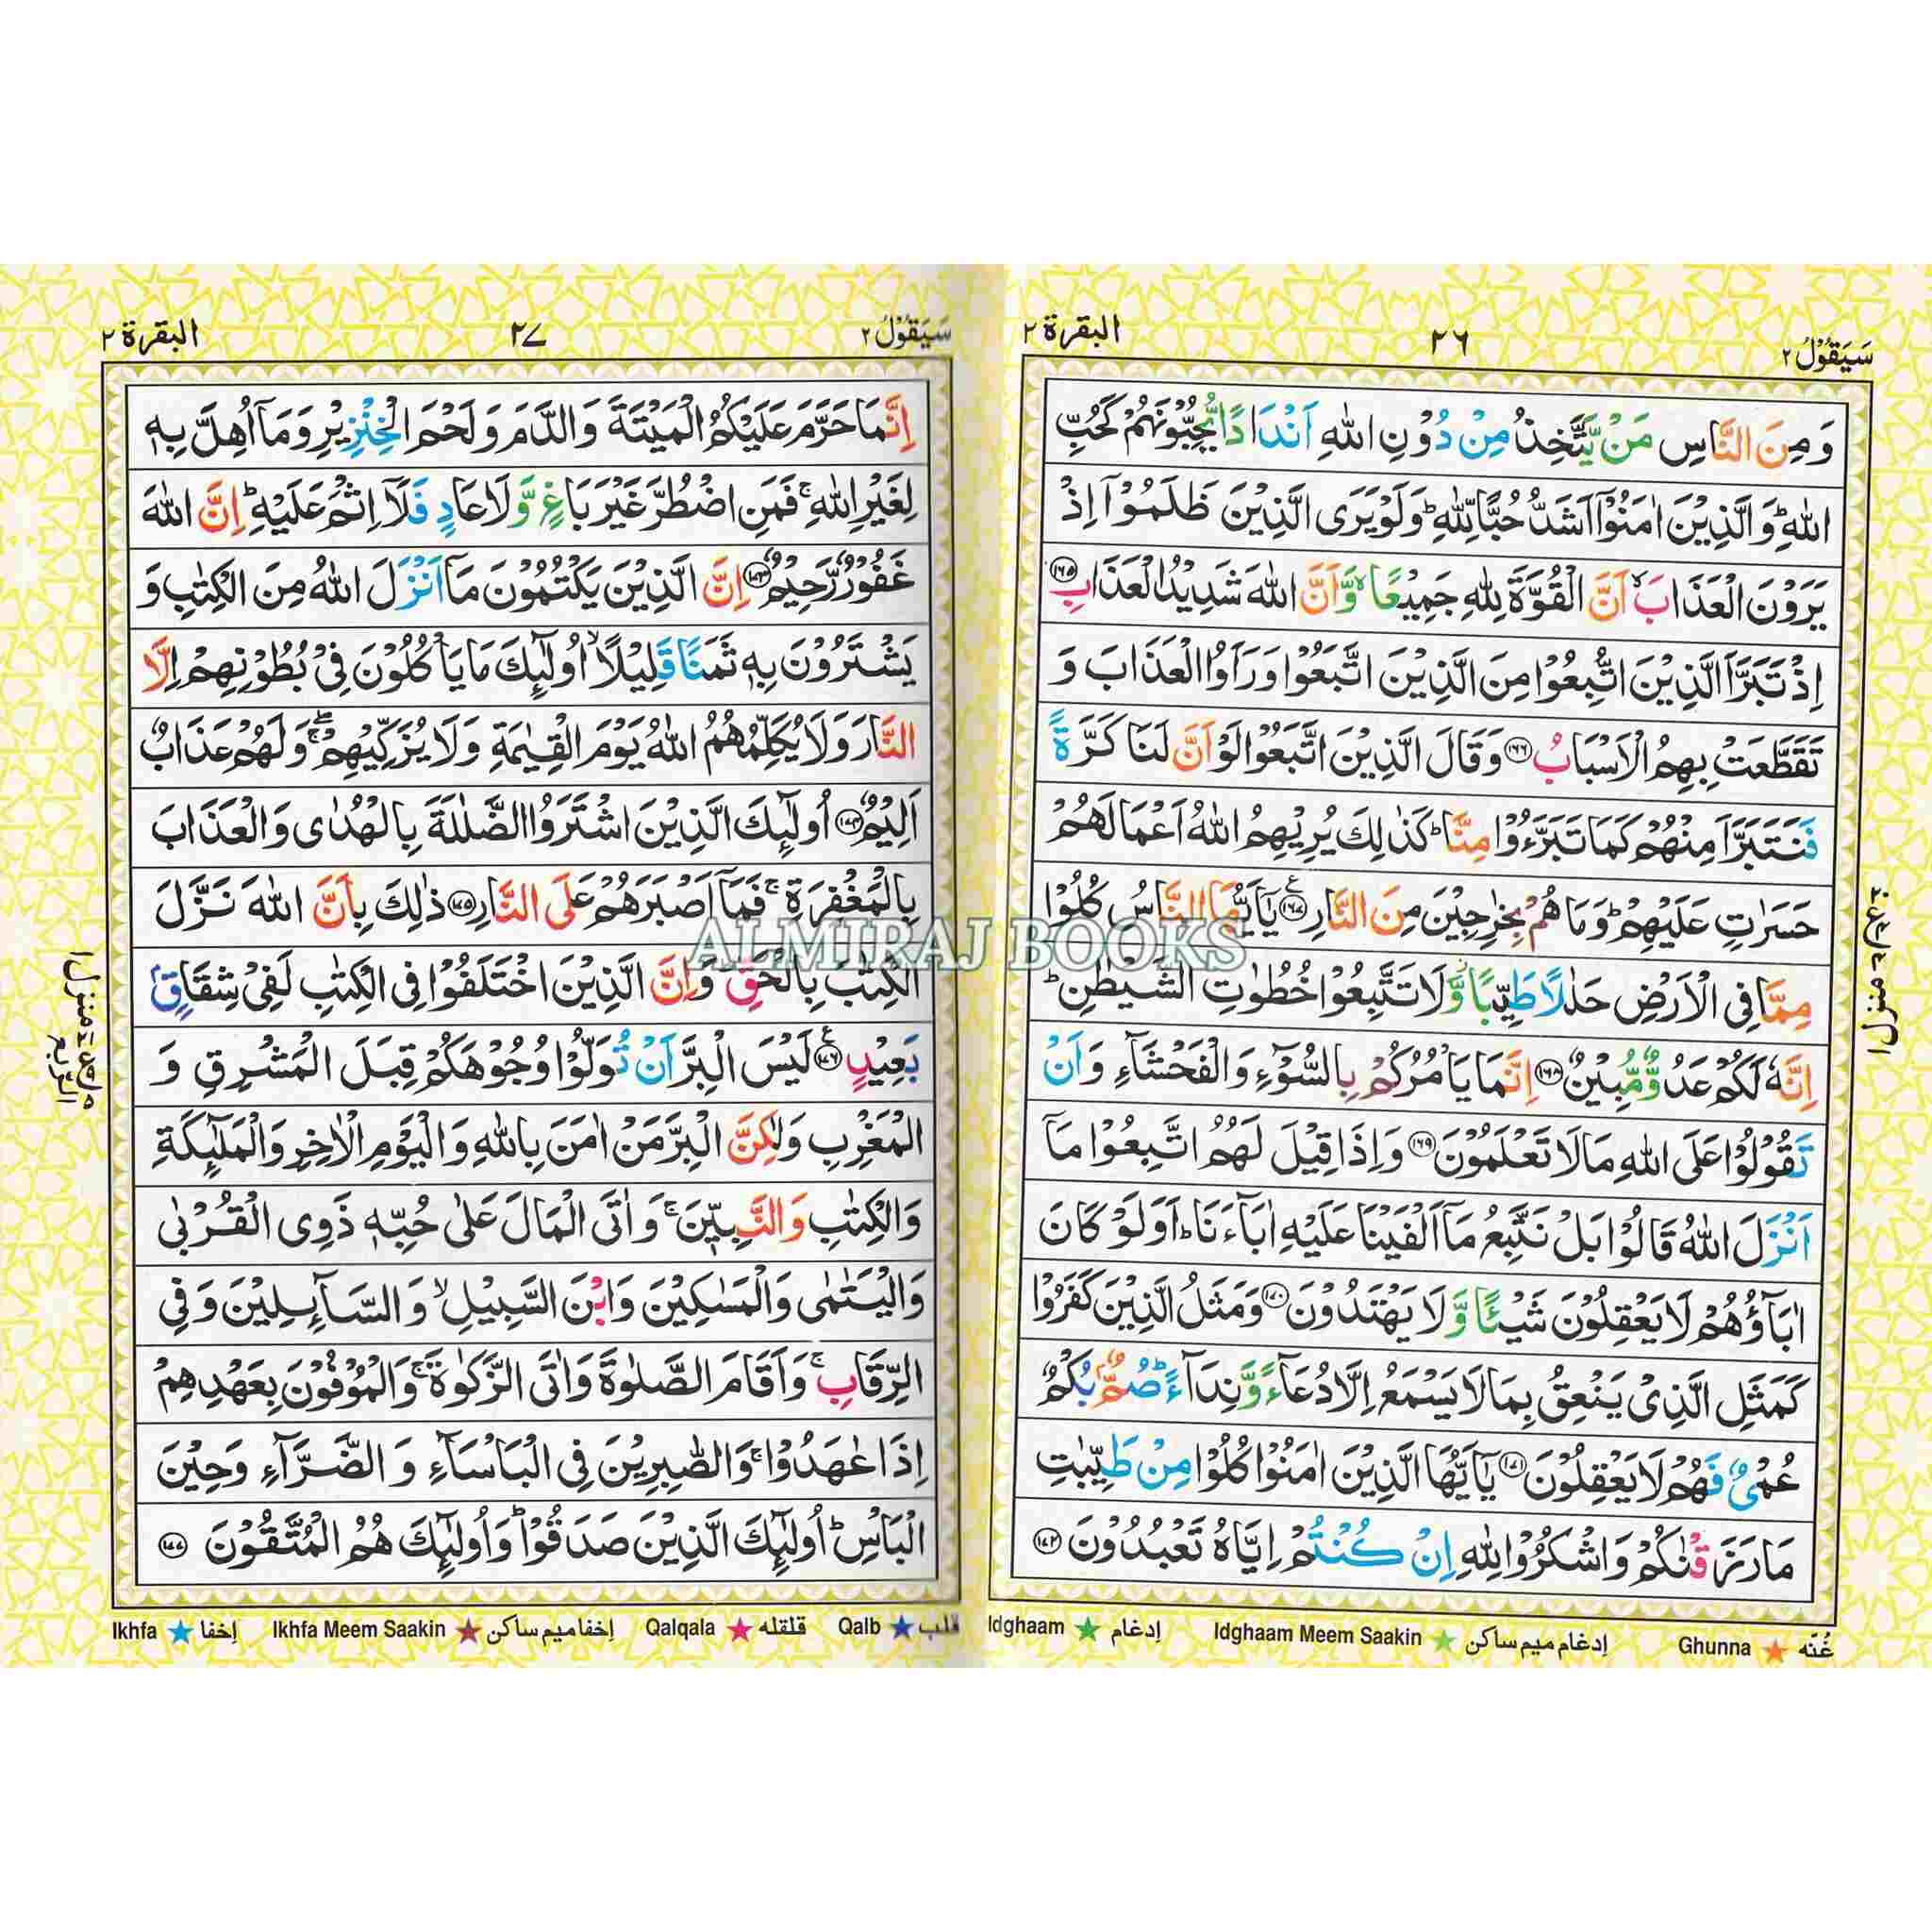 سَيَقُوْلُ ٢
٢٦
البقرة ٢
وَمِنَ النَّاسِ مَنْ يَّتَّخِذُ مِنْ دُوْنِ اللّٰهِ اَنْدَادًا يُّحِبُّوْنَهُمْ كَحُبِّ
اللّٰهِ ؕ وَالَّذِيْنَ اٰمَنُوْۤا اَشَدُّ حُبًّا لِّلّٰهِ ؕ وَلَوْ يَرَى الَّذِيْنَ ظَلَمُوْۤا اِذْ
يَرَوْنَ الْعَذَابَ ۙ اَنَّ الْقُوَّةَ لِلّٰهِ جَمِيْعًا ۙ وَّاَنَّ اللّٰهَ شَدِيْدُ الْعَذَابِ ﴿۱۶۵﴾
اِذْ تَبَرَّاَ الَّذِيْنَ اتُّبِعُوْا مِنَ الَّذِيْنَ اتَّبَعُوْا وَرَاَوُا الْعَذَابَ وَ
تَقَطَّعَتْ بِهِمُ الْاَسْبَابُ ﴿۱۶۶﴾ وَقَالَ الَّذِيْنَ اتَّبَعُوْا لَوْ اَنَّ لَنَا كَرَّةً
فَنَتَبَرَّاَ مِنْهُمْ كَمَا تَبَرَّءُوْا مِنَّا ؕ كَذٰلِكَ يُرِيْهِمُ اللّٰهُ اَعْمَالَهُمْ
حَسَرٰتٍ عَلَيْهِمْ ؕ وَمَا هُمْ بِخٰرِجِيْنَ مِنَ النَّارِ ﴿۱۶۷﴾ يٰۤاَيُّهَا النَّاسُ كُلُوْا
مِمَّا فِى الْاَرْضِ حَلٰلًا طَيِّبًا وَّلَا تَتَّبِعُوْا خُطُوٰتِ الشَّيْطٰنِ ؕ
اِنَّهٗ لَكُمْ عَدُوٌّ مُّبِيْنٌ ﴿۱۶۸﴾ اِنَّمَا يَاْمُرُكُمْ بِالسُّوْٓءِ وَالْفَحْشَآءِ وَاَنْ
تَقُوْلُوْا عَلَى اللّٰهِ مَا لَا تَعْلَمُوْنَ ﴿۱۶۹﴾ وَاِذَا قِيْلَ لَهُمُ اتَّبِعُوْا مَاۤ
اَنْزَلَ اللّٰهُ قَالُوْا بَلْ نَتَّبِعُ مَاۤ اَلْفَيْنَا عَلَيْهِ اٰبَآءَنَا ؕ اَوَلَوْ كَانَ
اٰبَآؤُهُمْ لَا يَعْقِلُوْنَ شَيْـًٔا وَّلَا يَهْتَدُوْنَ ﴿۱۷۰﴾ وَمَثَلُ الَّذِيْنَ كَفَرُوْا
كَمَثَلِ الَّذِىْ يَنْعِقُ بِمَا لَا يَسْمَعُ اِلَّا دُعَآءً وَّنِدَآءً ؕ صُمٌّۢ بُكْمٌ
عُمْىٌ فَهُمْ لَا يَعْقِلُوْنَ ﴿۱۷۱﴾ يٰۤاَيُّهَا الَّذِيْنَ اٰمَنُوْا كُلُوْا مِنْ طَيِّبٰتِ
مَا رَزَقْنٰكُمْ وَاشْكُرُوْا لِلّٰهِ اِنْ كُنْتُمْ اِيَّاهُ تَعْبُدُوْنَ ﴿۱۷۲﴾
غُنّه ★ Ghunna إدغام ميم ساكن ★ Idghaam Meem Saakin إدغام ★ Idghaam
سَيَقُوْلُ ٢
٢٧
البقرة ٢
اِنَّمَا حَرَّمَ عَلَيْكُمُ الْمَيْتَةَ وَالدَّمَ وَلَحْمَ الْخِنْزِيْرِ وَمَاۤ اُهِلَّ بِهٖ
لِغَيْرِ اللّٰهِ ۚ فَمَنِ اضْطُرَّ غَيْرَ بَاغٍ وَّلَا عَادٍ فَلَاۤ اِثْمَ عَلَيْهِ ؕ اِنَّ اللّٰهَ
غَفُوْرٌ رَّحِيْمٌ ﴿۱۷۳﴾ اِنَّ الَّذِيْنَ يَكْتُمُوْنَ مَاۤ اَنْزَلَ اللّٰهُ مِنَ الْكِتٰبِ وَ
يَشْتَرُوْنَ بِهٖ ثَمَنًا قَلِيْلًا ۙ اُولٰٓئِكَ مَا يَاْكُلُوْنَ فِىْ بُطُوْنِهِمْ اِلَّا
النَّارَ وَلَا يُكَلِّمُهُمُ اللّٰهُ يَوْمَ الْقِيٰمَةِ وَلَا يُزَكِّيْهِمْ ۖۚ وَلَهُمْ عَذَابٌ
اَلِيْمٌ ﴿۱۷۴﴾ اُولٰٓئِكَ الَّذِيْنَ اشْتَرَوُا الضَّلٰلَةَ بِالْهُدٰى وَالْعَذَابَ
بِالْمَغْفِرَةِ ۚ فَمَاۤ اَصْبَرَهُمْ عَلَى النَّارِ ﴿۱۷۵﴾ ذٰلِكَ بِاَنَّ اللّٰهَ نَزَّلَ
الْكِتٰبَ بِالْحَقِّ ؕ وَاِنَّ الَّذِيْنَ اخْتَلَفُوْا فِى الْكِتٰبِ لَفِىْ شِقَاقٍۭ
بَعِيْدٍ ﴿۱۷۶﴾ لَيْسَ الْبِرَّ اَنْ تُوَلُّوْا وُجُوْهَكُمْ قِبَلَ الْمَشْرِقِ وَ
الْمَغْرِبِ وَلٰكِنَّ الْبِرَّ مَنْ اٰمَنَ بِاللّٰهِ وَالْيَوْمِ الْاٰخِرِ وَالْمَلٰٓئِكَةِ
وَالْكِتٰبِ وَالنَّبِيّٖنَ ۚ وَاٰتَى الْمَالَ عَلٰى حُبِّهٖ ذَوِى الْقُرْبٰى
وَالْيَتٰمٰى وَالْمَسٰكِيْنَ وَابْنَ السَّبِيْلِ ۙ وَالسَّآئِلِيْنَ وَفِى
الرِّقَابِ ۚ وَاَقَامَ الصَّلٰوةَ وَاٰتَى الزَّكٰوةَ ۚ وَالْمُوْفُوْنَ بِعَهْدِهِمْ
اِذَا عٰهَدُوْا ۚ وَالصّٰبِرِيْنَ فِى الْبَاْسَآءِ وَالضَّرَّآءِ وَحِيْنَ
الْبَاْسِ ؕ اُولٰٓئِكَ الَّذِيْنَ صَدَقُوْا ؕ وَاُولٰٓئِكَ هُمُ الْمُتَّقُوْنَ ﴿۱۷۷﴾
قلب ★ Qalb قلقله ★ Qalqala إخفا ميم ساكن ★ Ikhfa Meem Saakin إخفا ★ Ikhfa
ALMIRAJ BOOKS